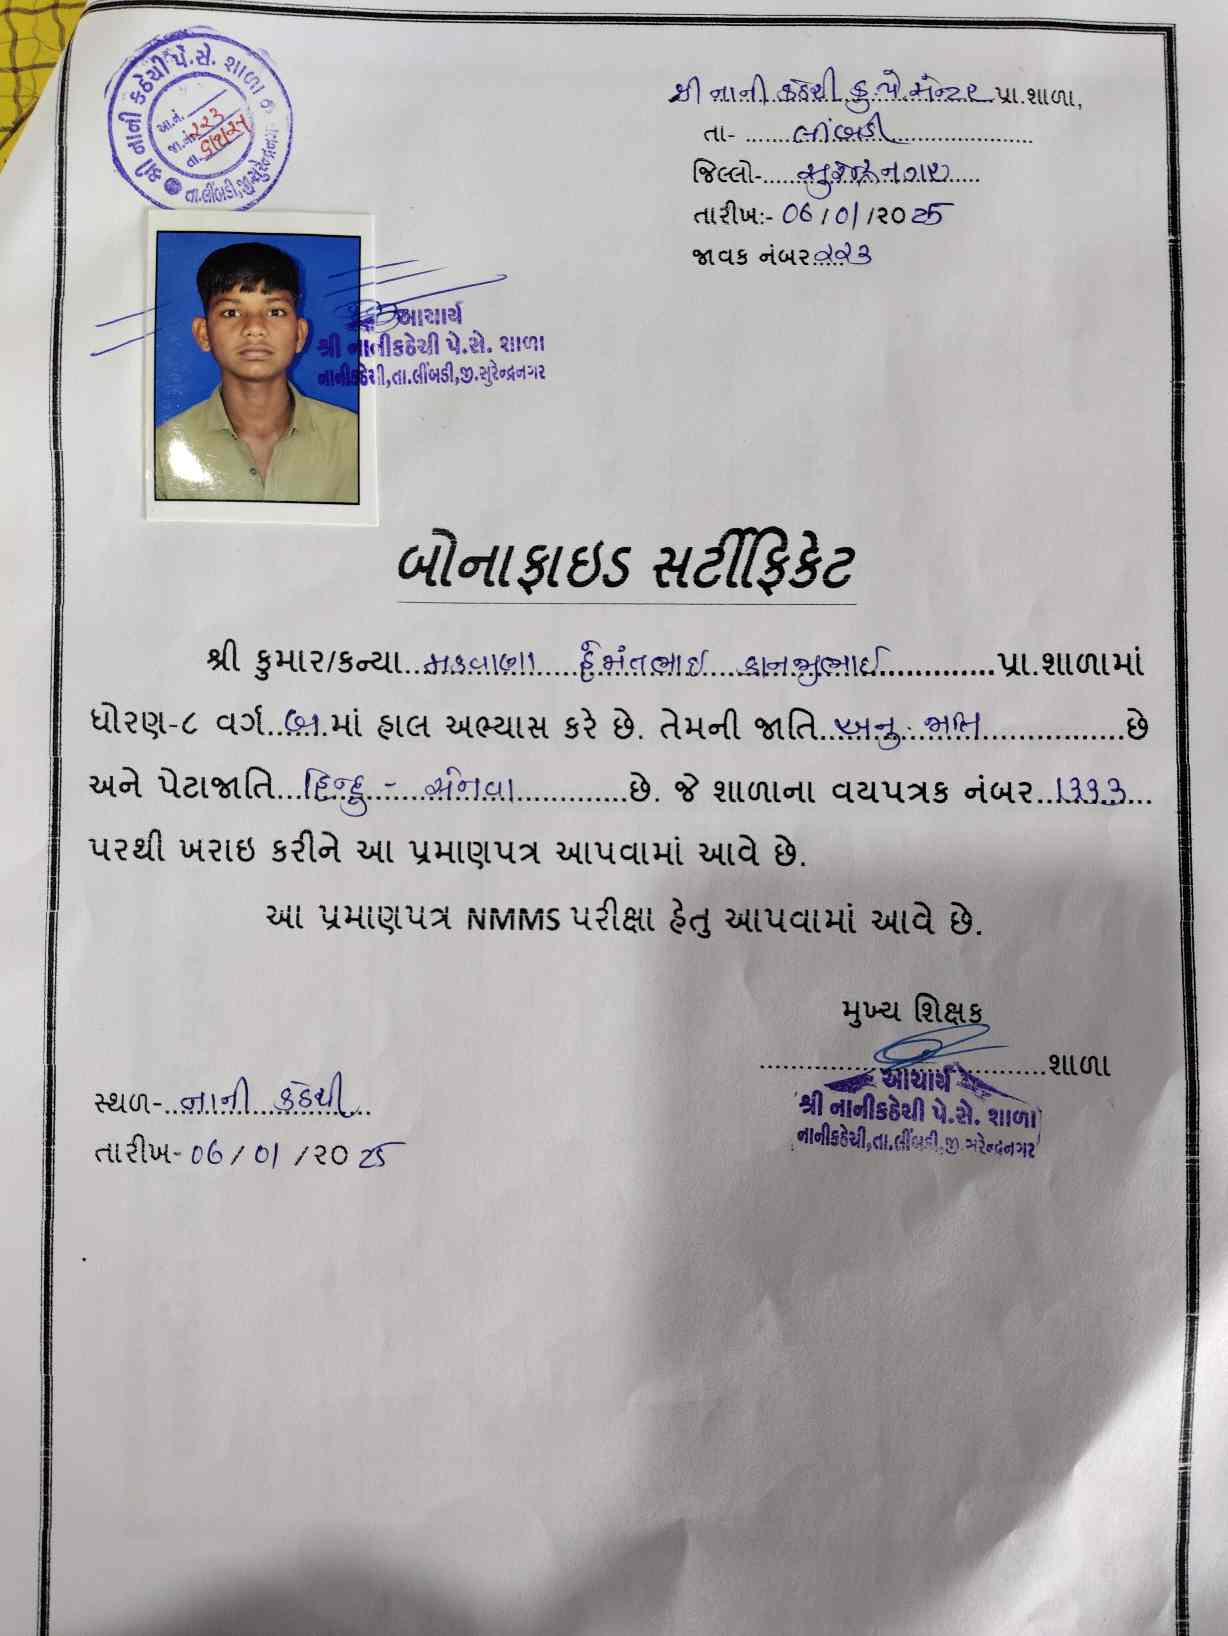 શ્રી નાની કઠેચી પે.સે. શાળા
આ.નં.
જા.નં. ૨૨૩
તા.
તા.લીંબડી,જી.સુરેન્દ્રનગર
શ્રી નાની કઠેચી કુ પે સેન્ટર પ્રા.શાળા,
તા- લીંબડી
જિલ્લો- સુરેન્દ્રનગર
તારીખ:- 06/01/૨૦25
જાવક નંબર ૨૨૩
આચાર્ય
શ્રી નાનીકઠેચી પે.સે. શાળા
નાનીકઠેચી,તા.લીંબડી,જી.સુરેન્દ્રનગર
બોનાફાઇડ સર્ટીફિકેટ
શ્રી કુમાર/કન્યા મકવાણા હેમંતભાઈ કાનજીભાઈ પ્રા.શાળામાં
ધોરણ-૮ વર્ગ બ માં હાલ અભ્યાસ કરે છે. તેમની જાતિ અનુ. જાતિ છે
અને પેટાજાતિ હિન્દુ - સેનવા છે. જે શાળાના વયપત્રક નંબર ૧૩૩૩
પરથી ખરાઇ કરીને આ પ્રમાણપત્ર આપવામાં આવે છે.
આ પ્રમાણપત્ર NMMS પરીક્ષા હેતુ આપવામાં આવે છે.
મુખ્ય શિક્ષક
શાળા
આચાર્ય
શ્રી નાનીકઠેચી પે.સે. શાળા
નાનીકઠેચી,તા.લીંબડી,જી.સુરેન્દ્રનગર
સ્થળ- નાની કઠેચી
તારીખ- 06/01/૨૦25